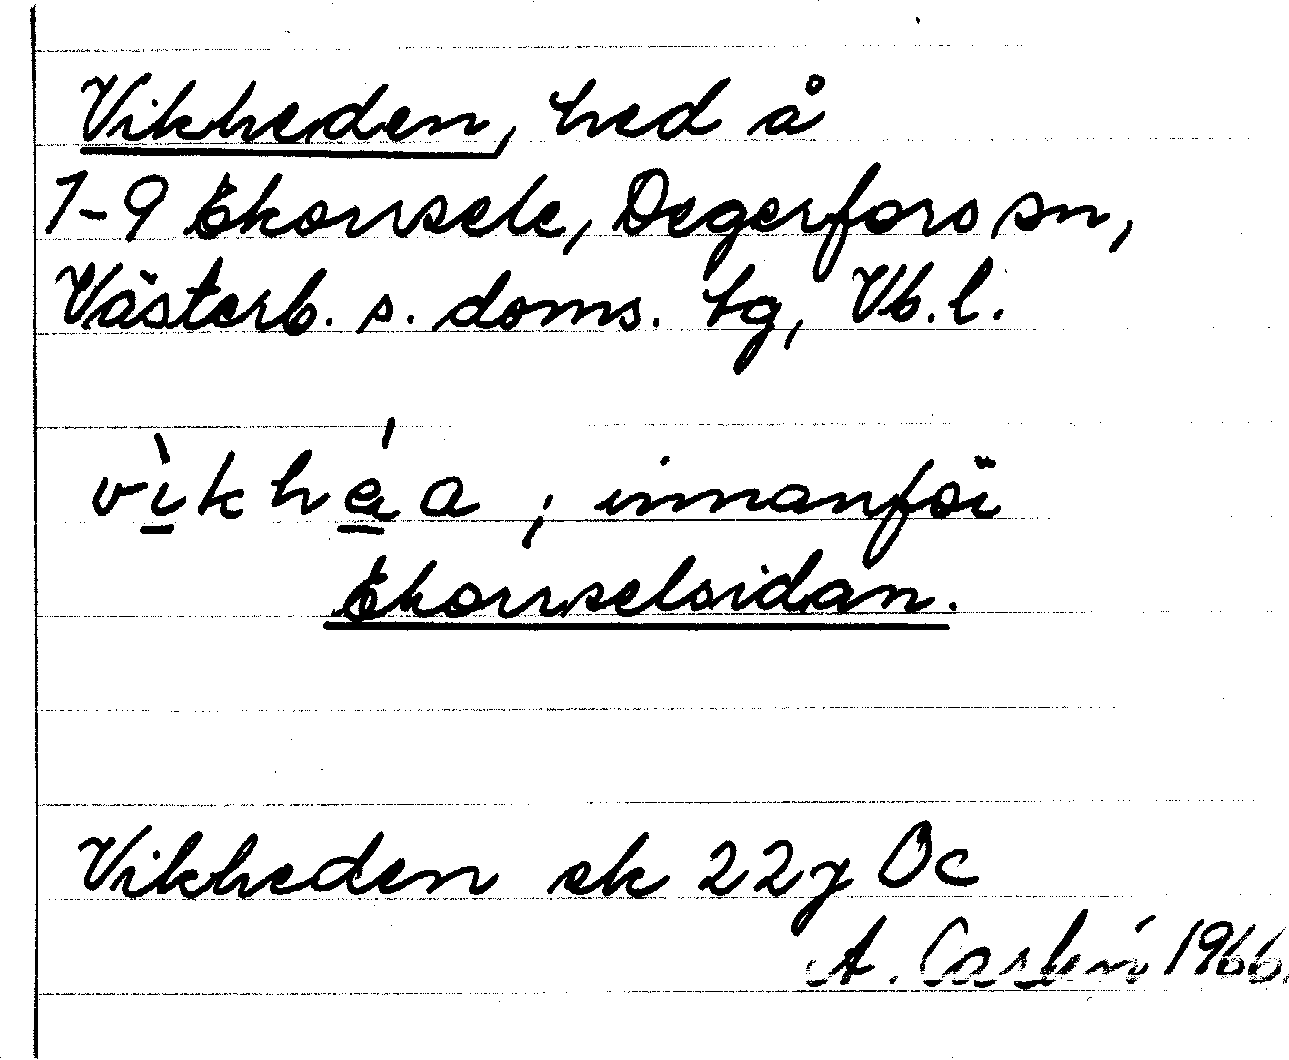 Vikheden, hed å
1-9 Ekorrsele, Degerfors sn,
Västerb. s. doms. tg, Vb.l.
vìkhéa ; innanför
Ekorrselsidan.
Vikheden ek 22j Oc
A. 1966.